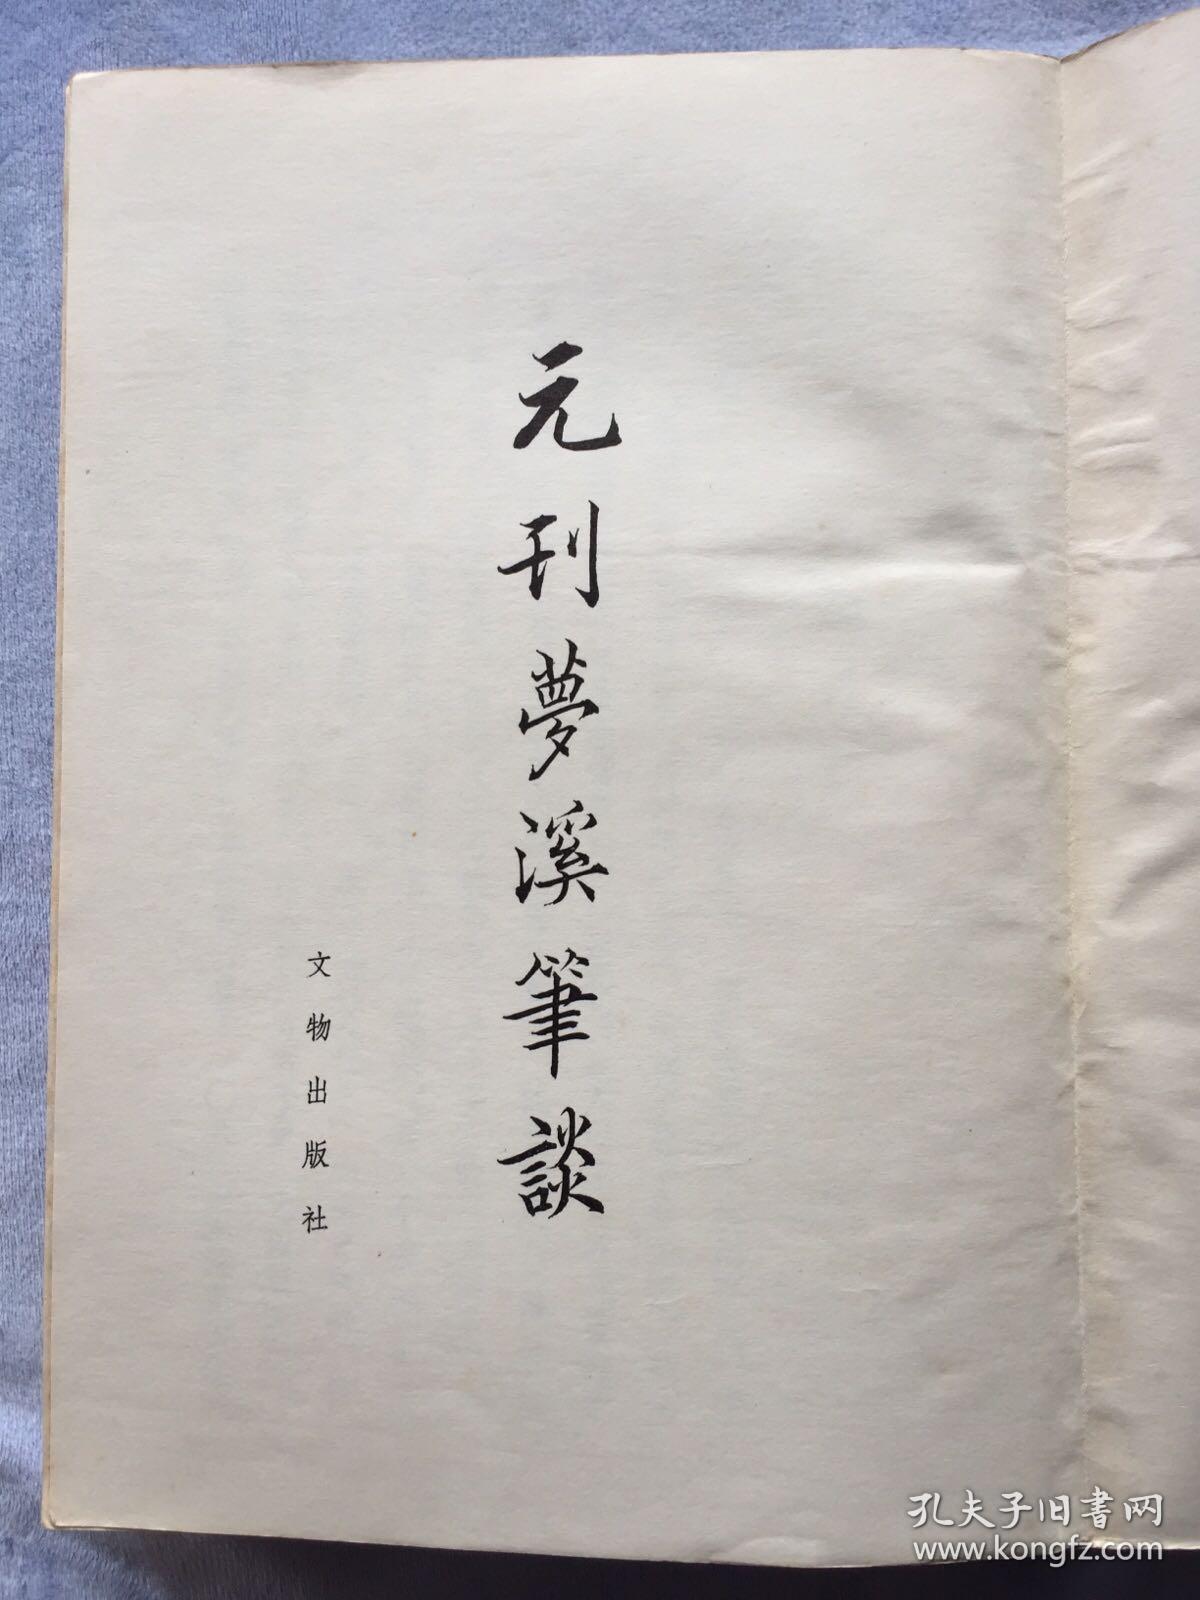 元刊夢溪筆談
文物出版社
孔夫子旧书网
www.kongfz.com